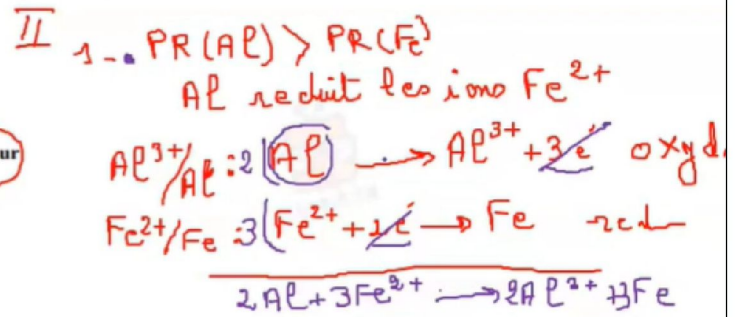 II 1-. PR(Al) > PR(Fe)
Al reduit les ions Fe²⁺
ur
Al³⁺/Al : 2(Al → Al³⁺ + 3e⁻ oxyd.
Fe²⁺/Fe : 3(Fe²⁺ + 2e⁻ → Fe red
2Al + 3Fe²⁺ → 2Al³⁺ + 3Fe